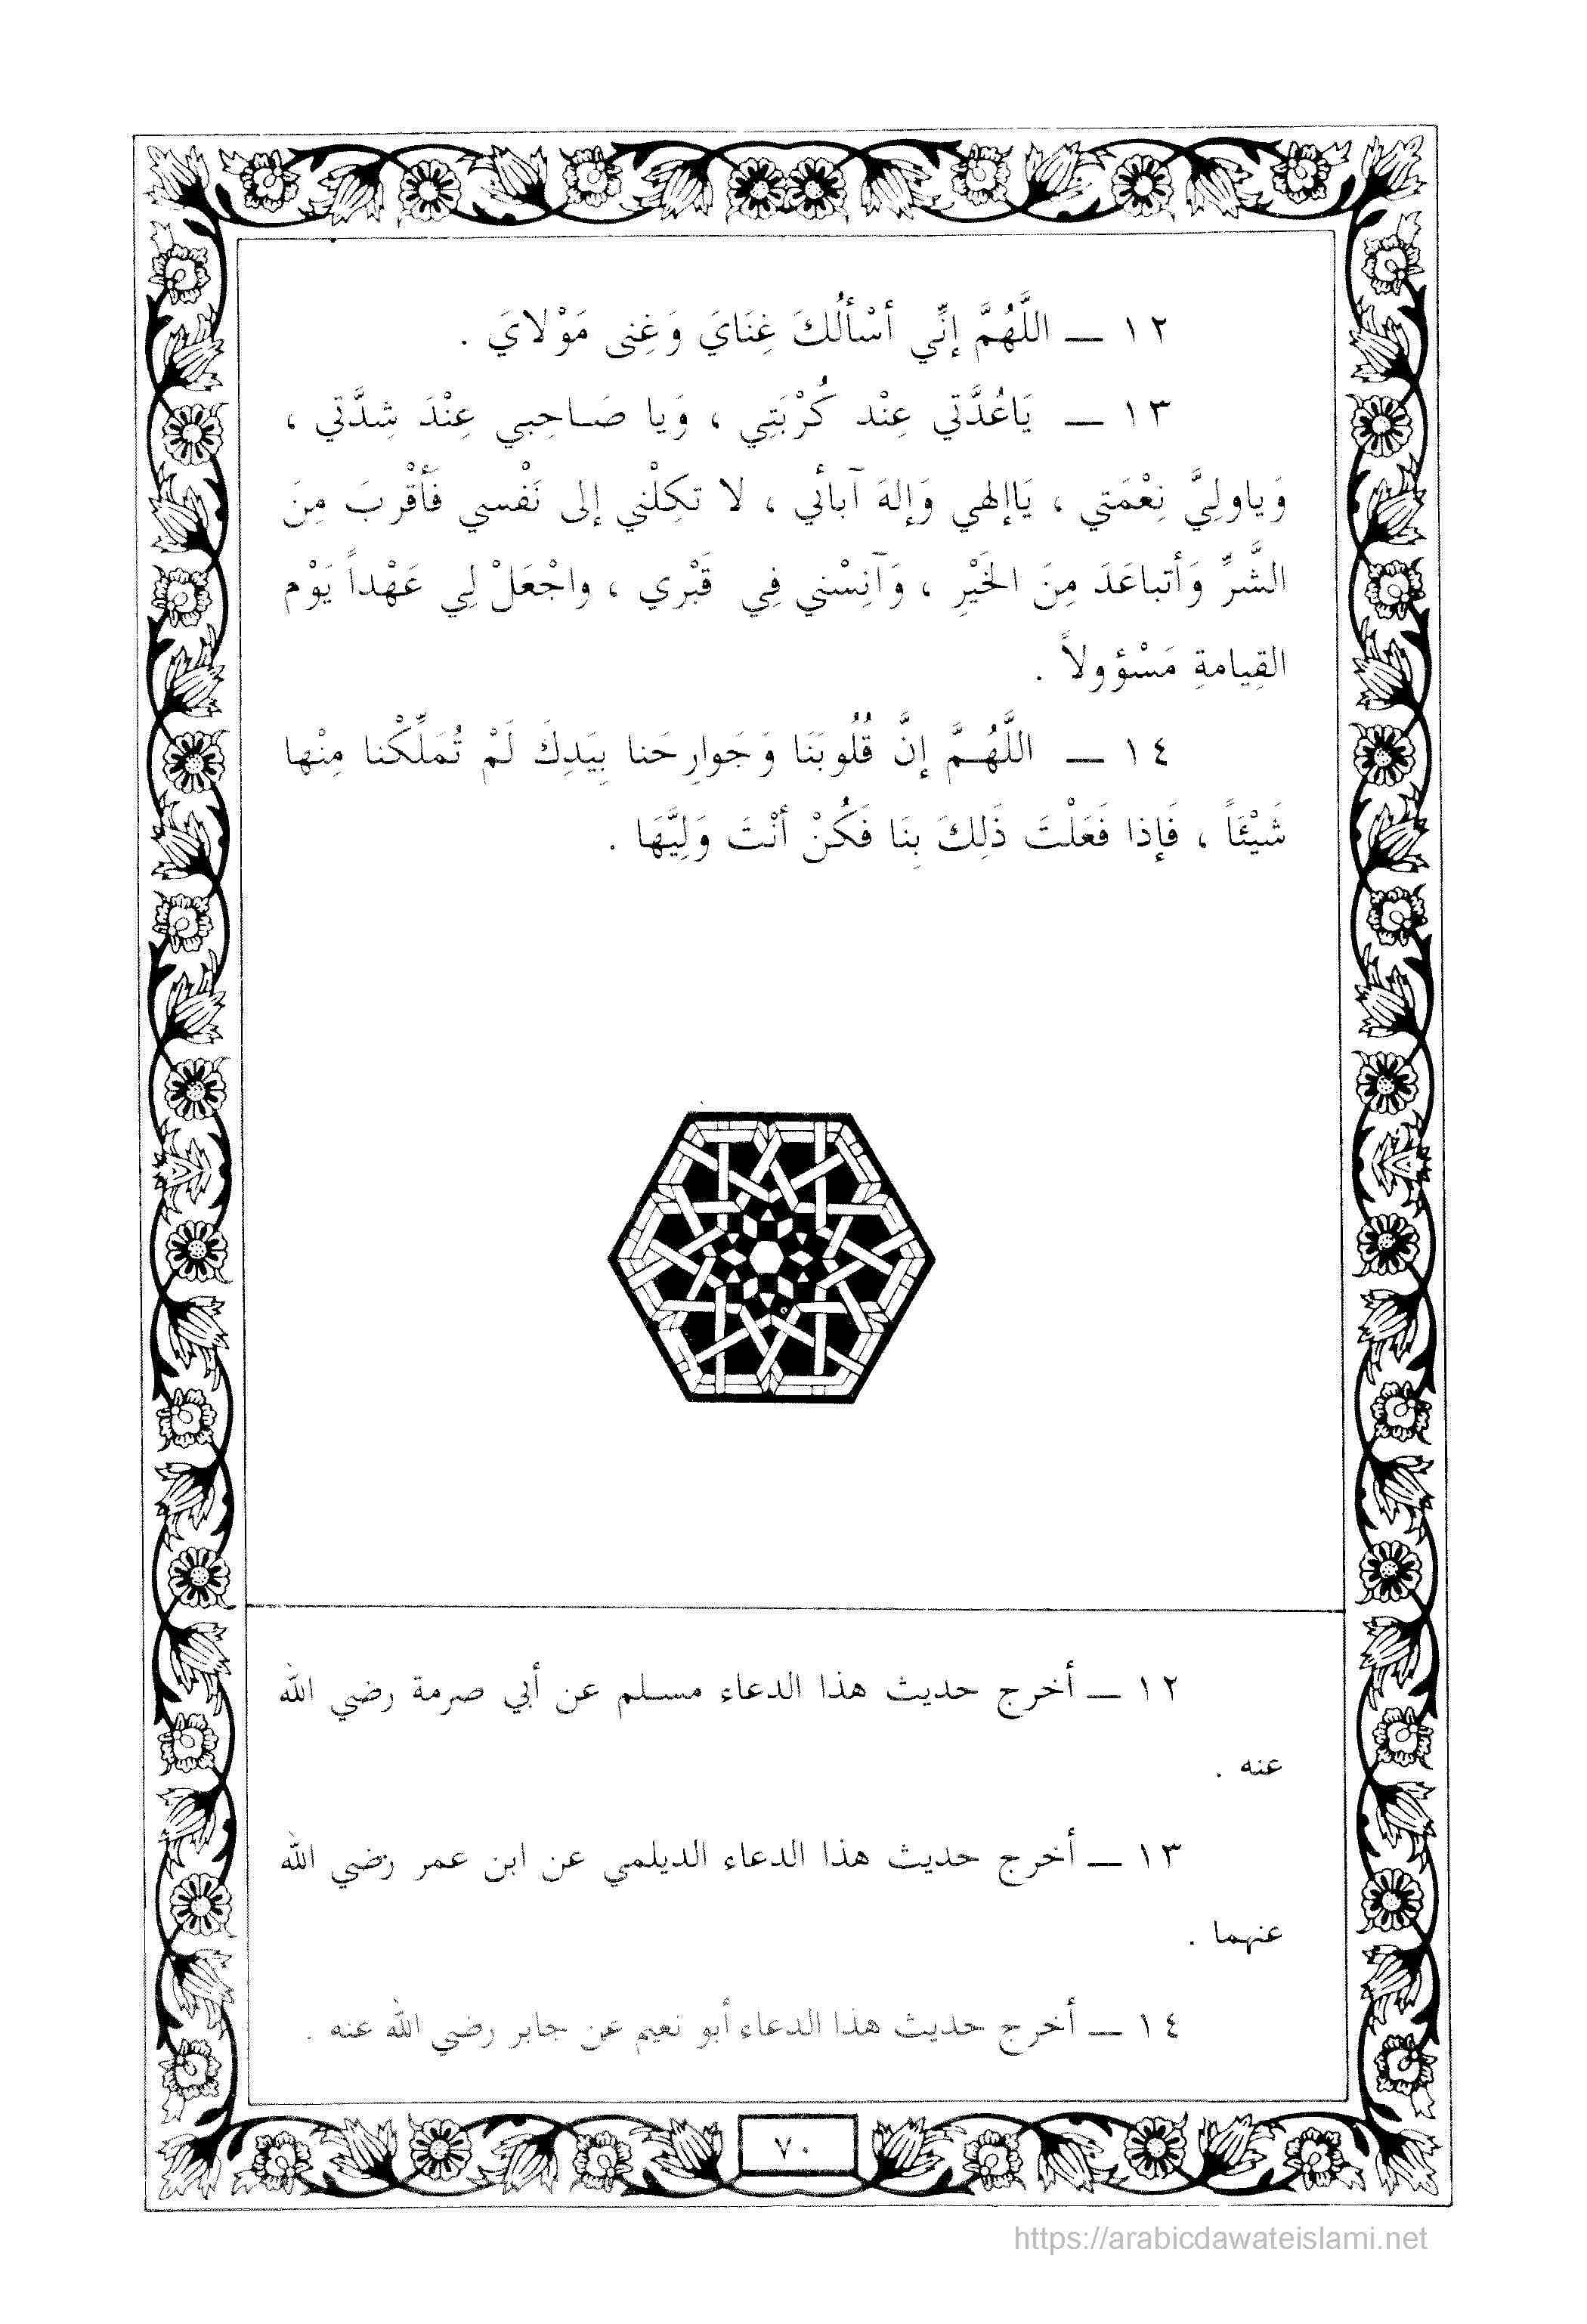 ١٢ — اللَّهُمَّ إنِّي أسْألُكَ غِنَايَ وَغِنى مَوْلايَ .
١٣ — يَاعُدَّتي عِنْد كُرْبَتِي ، وَيا صَاحِبي عِنْدَ شِدَّتي ،
وَياولِيَّ نِعْمَتي ، يَاإلهي وَإلهَ آبائي ، لا تكِلْني إلى نَفْسي فَأقْربَ مِنَ
الشَّرِّ وَأتباعَدَ مِنَ الخَيْرِ ، وَآنِسْني فِي قَبْري ، واجْعَلْ لِي عَهْداً يَوْم
القِيامةِ مَسْؤولاً .
١٤ — اللَّهُمَّ إنَّ قُلُوبَنَا وَجَوارِحَنا بِيَدِكَ لَمْ تُمَلِّكْنا مِنْها
شَيْئَاً ، فَإذا فَعَلْتَ ذَلِكَ بِنَا فَكُنْ أنْتَ وَلِيَّهَا .
١٢ — أخرج حديث هذا الدعاء مسلم عن أبي صرمة رضي الله
عنه .
١٣ — أخرج حديث هذا الدعاء الديلمي عن ابن عمر رضي الله
عنهما .
١٤ — أخرج حديث هذا الدعاء أبو نعيم عن جابر رضي الله عنه .
٧٠
https://arabicdawateislami.net